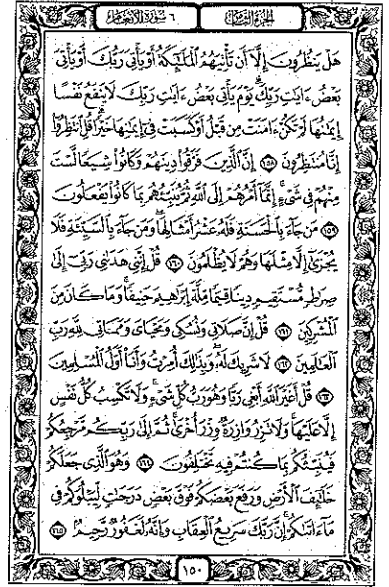 الجزء الثامن
٦ سورة الأنعام
هَلْ يَنظُرُونَ إِلَّآ أَن تَأْتِيَهُمُ ٱلْمَلَٰٓئِكَةُ أَوْ يَأْتِىَ رَبُّكَ أَوْ يَأْتِىَ
بَعْضُ ءَايَٰتِ رَبِّكَ يَوْمَ يَأْتِى بَعْضُ ءَايَٰتِ رَبِّكَ لَا يَنفَعُ نَفْسًا
إِيمَٰنُهَا لَمْ تَكُنْ ءَامَنَتْ مِن قَبْلُ أَوْ كَسَبَتْ فِىٓ إِيمَٰنِهَا خَيْرًا قُلِ ٱنتَظِرُوٓا۟
إِنَّا مُنتَظِرُونَ ١٥٨ إِنَّ ٱلَّذِينَ فَرَّقُوا۟ دِينَهُمْ وَكَانُوا۟ شِيَعًا لَّسْتَ
مِنْهُمْ فِى شَىْءٍ إِنَّمَآ أَمْرُهُمْ إِلَى ٱللَّهِ ثُمَّ يُنَبِّئُهُم بِمَا كَانُوا۟ يَفْعَلُونَ
١٥٩ مَن جَآءَ بِٱلْحَسَنَةِ فَلَهُۥ عَشْرُ أَمْثَالِهَا وَمَن جَآءَ بِٱلسَّيِّئَةِ فَلَا
يُجْزَىٰٓ إِلَّا مِثْلَهَا وَهُمْ لَا يُظْلَمُونَ ١٦٠ قُلْ إِنَّنِى هَدَىٰنِى رَبِّىٓ إِلَىٰ
صِرَٰطٍ مُّسْتَقِيمٍ دِينًا قِيَمًا مِّلَّةَ إِبْرَٰهِيمَ حَنِيفًا وَمَا كَانَ مِنَ
ٱلْمُشْرِكِينَ ١٦١ قُلْ إِنَّ صَلَاتِى وَنُسُكِى وَمَحْيَاىَ وَمَمَاتِى لِلَّهِ رَبِّ
ٱلْعَٰلَمِينَ ١٦٢ لَا شَرِيكَ لَهُۥ وَبِذَٰلِكَ أُمِرْتُ وَأَنَا۠ أَوَّلُ ٱلْمُسْلِمِينَ
١٦٣ قُلْ أَغَيْرَ ٱللَّهِ أَبْغِى رَبًّا وَهُوَ رَبُّ كُلِّ شَىْءٍ وَلَا تَكْسِبُ كُلُّ نَفْسٍ
إِلَّا عَلَيْهَا وَلَا تَزِرُ وَازِرَةٌ وِزْرَ أُخْرَىٰ ثُمَّ إِلَىٰ رَبِّكُم مَّرْجِعُكُمْ
فَيُنَبِّئُكُم بِمَا كُنتُمْ فِيهِ تَخْتَلِفُونَ ١٦٤ وَهُوَ ٱلَّذِى جَعَلَكُمْ
خَلَٰٓئِفَ ٱلْأَرْضِ وَرَفَعَ بَعْضَكُمْ فَوْقَ بَعْضٍ دَرَجَٰتٍ لِّيَبْلُوَكُمْ فِى
مَآ ءَاتَىٰكُمْ إِنَّ رَبَّكَ سَرِيعُ ٱلْعِقَابِ وَإِنَّهُۥ لَغَفُورٌ رَّحِيمٌ ١٦٥
١٥٠